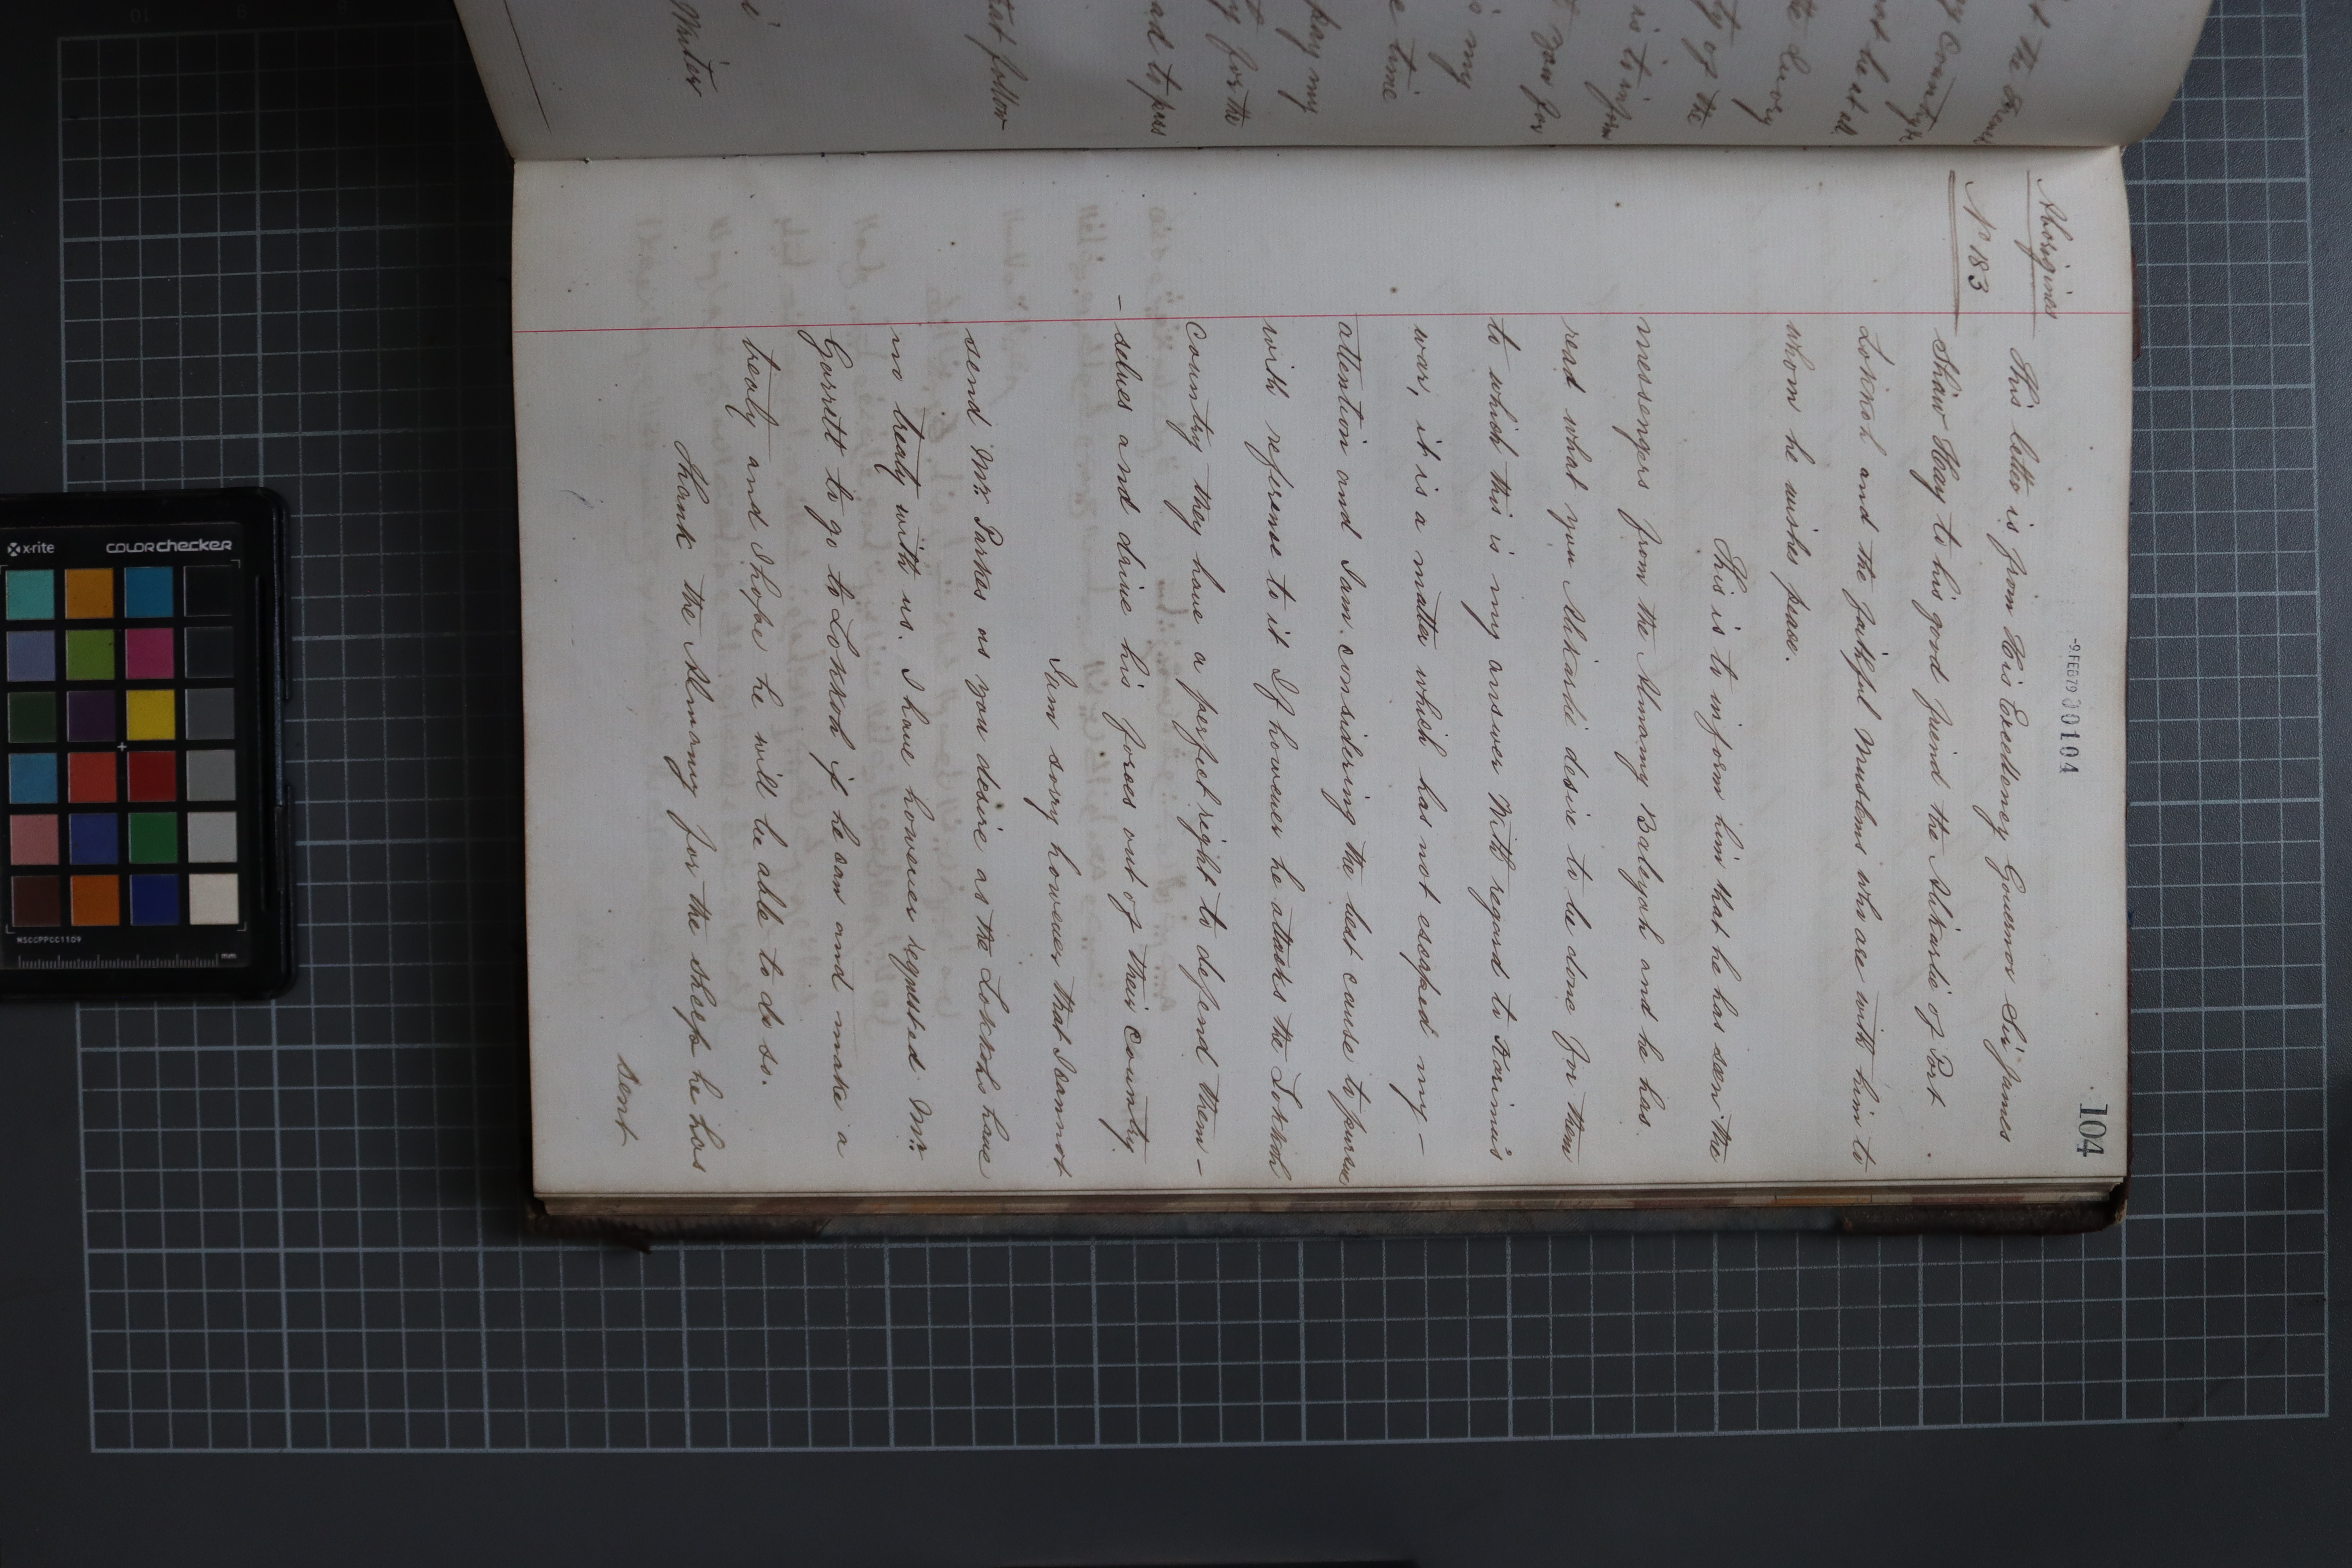 104
-9.FEB79 000104
Aborigines
No 183
This letter is from His Excellency Governor Sir James
Shaw Hay to his good friend the Alikarlie of Port
Lokkoh and the faithful Muslims who are with him to
whom he wishes peace.
This is to inform him that he has seen the
messengers from the Almamy Baleyoh and he has
read what you Alikarlie desire to be done for them
to which this is my answer With regard to Karimu's
war, it is a matter which has not escaped my -
attention and I am considering the best cause to pursue
with reference to it If however he attacks the Lokkoh
country they have a perfect right to defend them -
- selves and drive his forces out of their country.
I am sorry however that I cannot
send Mr. Parkes as you desire as the Lokkohs have
no treaty with us. I have however requested Mr.
Garrett to go to Lokkoh if he can and make a
treaty and I hope he will be able to do so.
Thank the Almamy for the sheep he has
sent
that follow
ad to pass
y for the
pay my
e time
is my
t your for
is to inform
ty of the
the Query
not be at all
ng Country
Writer
x-rite
colorchecker
MSCCPPCC1109
mm